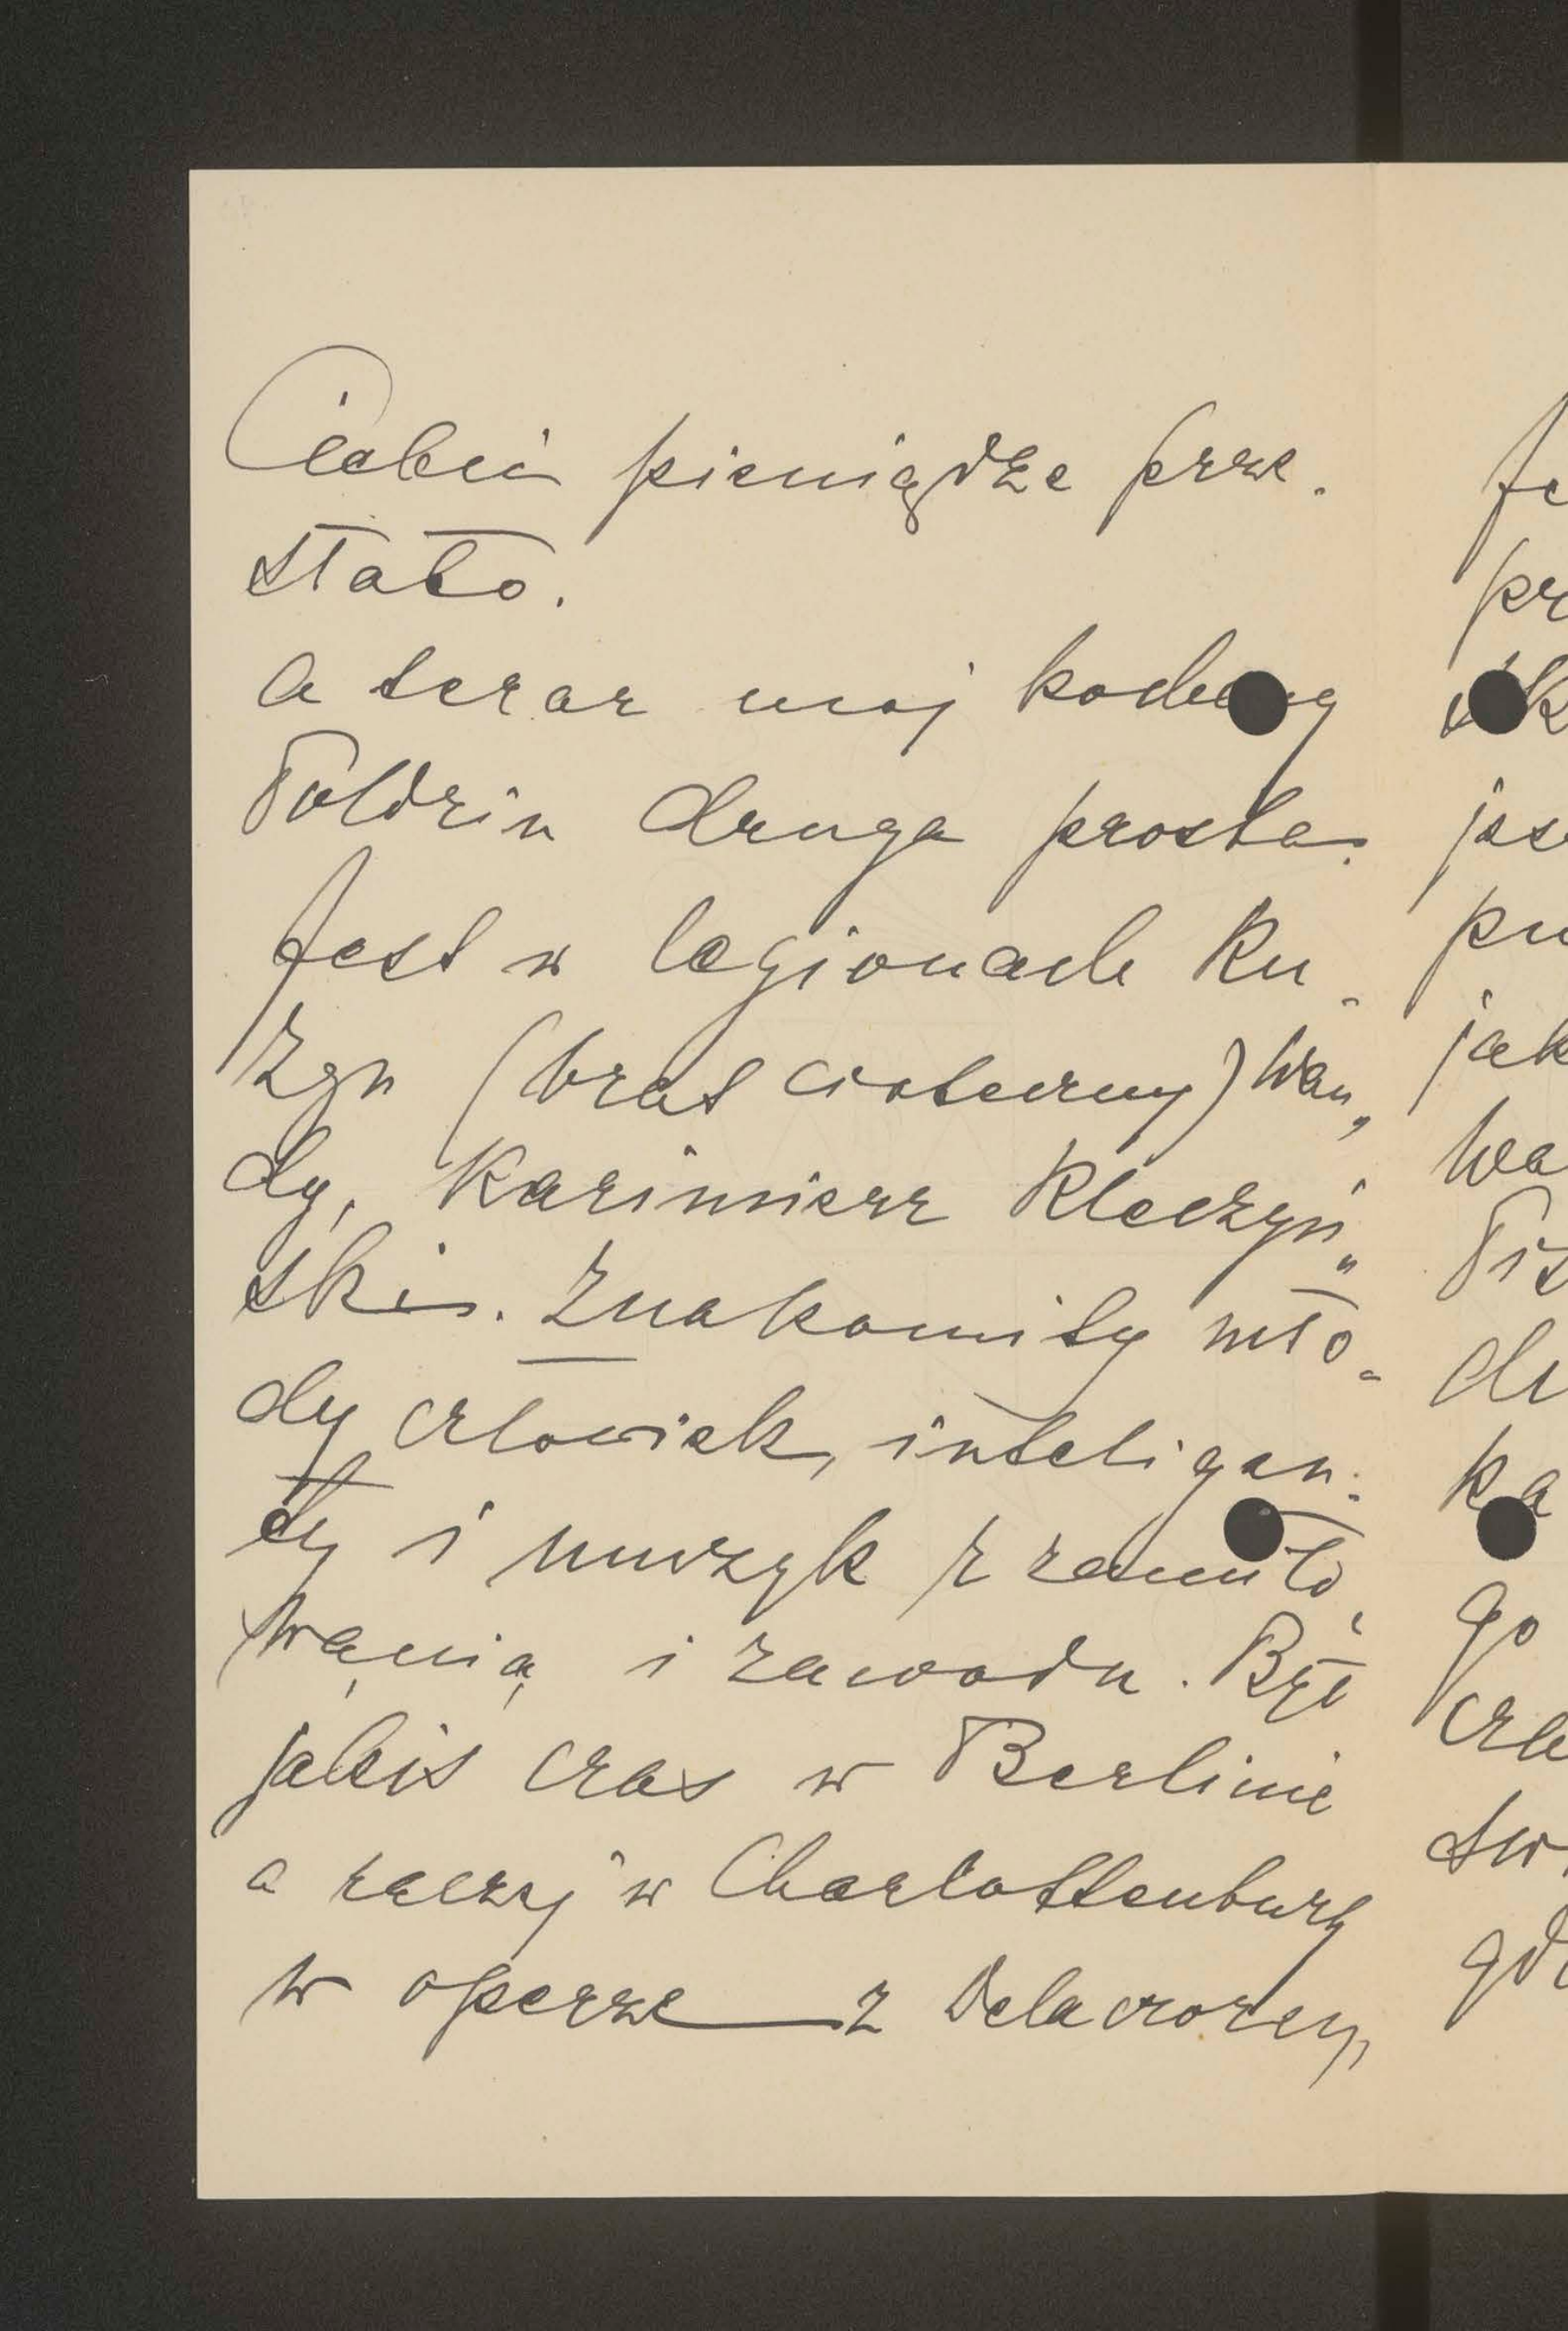 Ciebie pieniądze prze-
słało.
A teraz moj kochany
Poldziu druga prosba.
Jest w legionach Ku-
zyn (brat cioteczny) Wan-
dy, Kazimierz Kleczyń-
ski. Znakomity mło-
dy człowiek, inteligen-
ty i muzyk z zamiło-
wania i zawodu. Był
jakiś czas w Berlinie
a raczej w Charlottenburg
w operze z